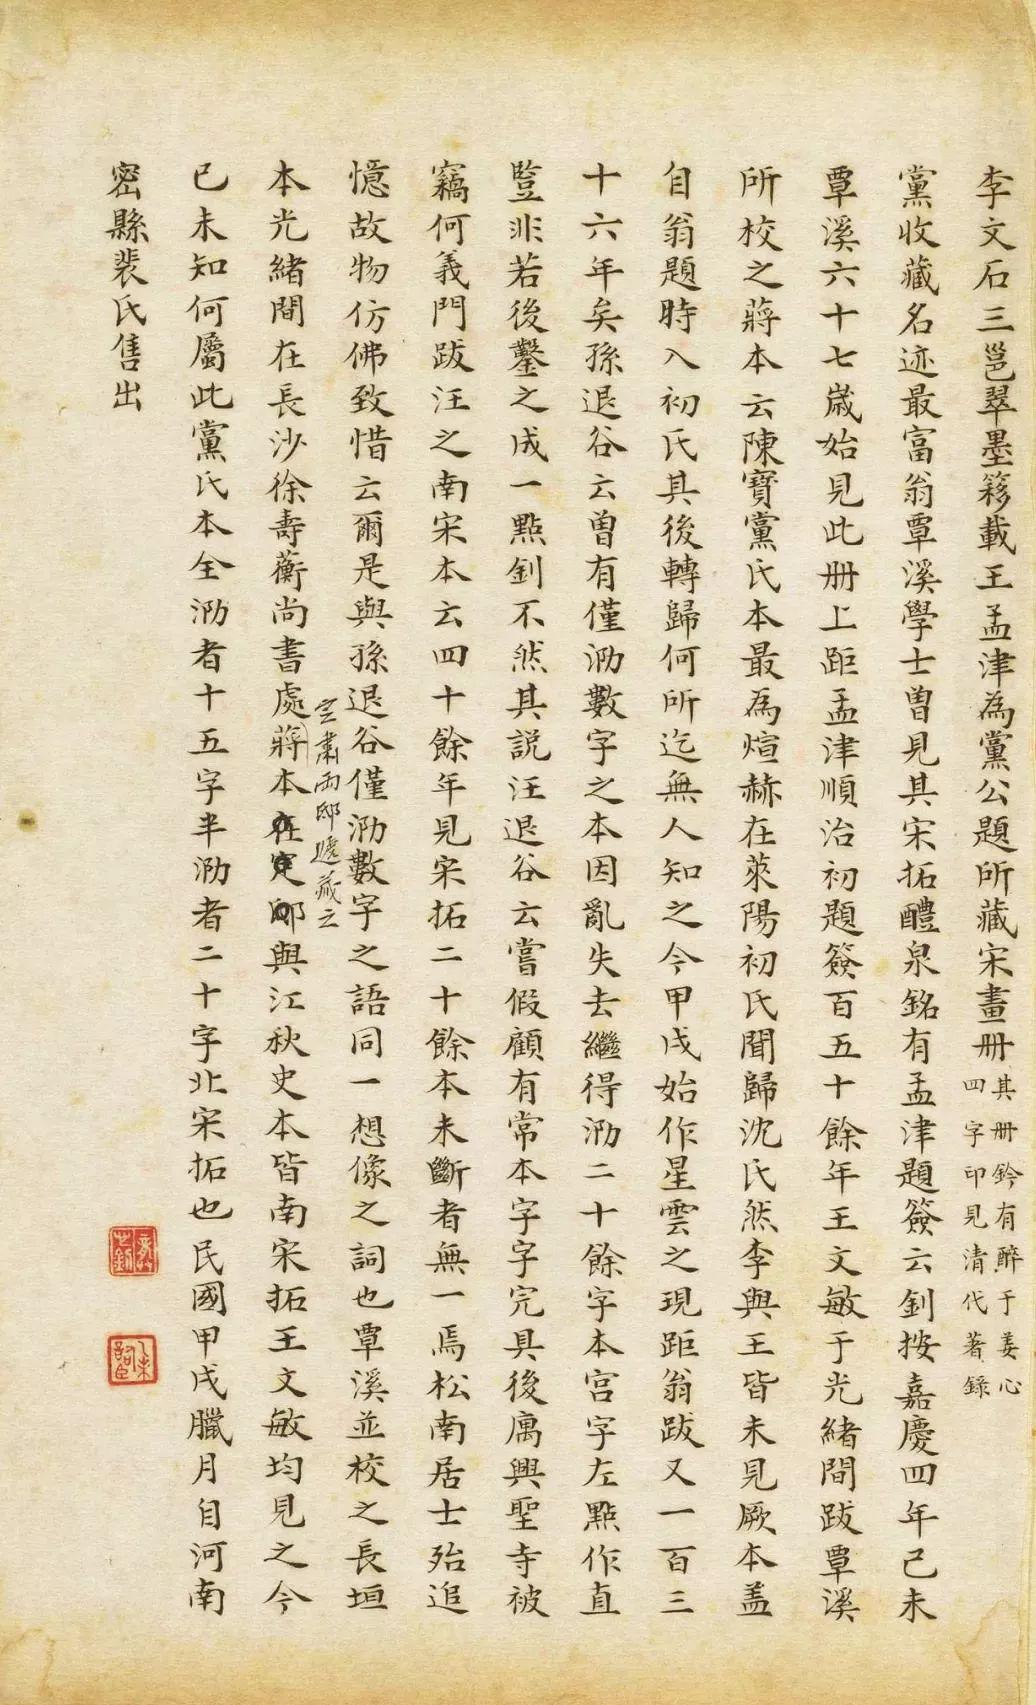 李文石三邕翠墨簃載王孟津為黨公題所藏宋畫冊其冊鈐有醉于姜心四字印見清代著錄
黨收藏名迹最富翁覃溪學士曾見其宋拓醴泉銘有孟津題簽云釗按嘉慶四年己未
覃溪六十七歲始見此冊上距孟津順治初題簽百五十餘年王文敏于光緒間跋覃溪
所校之蔣本云陳寶黨氏本最為煊赫在萊陽初氏聞歸沈氏然李與王皆未見厥本盖
自翁題時入初氏其後轉歸何所迄無人知之今甲戌始作星雲之現距翁跋又一百三
十六年矣孫退谷云曾有僅泐數字之本因亂失去繼得泐二十餘字本宮字左點作直
豎非若後鑿之成一點釗不然其説汪退谷云嘗假顧有常本字字完具後寓興聖寺被
竊何義門跋汪之南宋本云四十餘年見宋拓二十餘本未斷者無一焉松南居士殆追
憶故物仿佛致惜云爾是與孫退谷僅泐數字之語同一想像之詞也覃溪並校之長垣
本光緒間在長沙徐壽蘅尚書處蔣本宗肅兩邸遞藏之與江秋史本皆南宋拓王文敏均見之今
已未知何屬此黨氏本全泐者十五字半泐者二十字北宋拓也民國甲戌臘月自河南
密縣裴氏售出